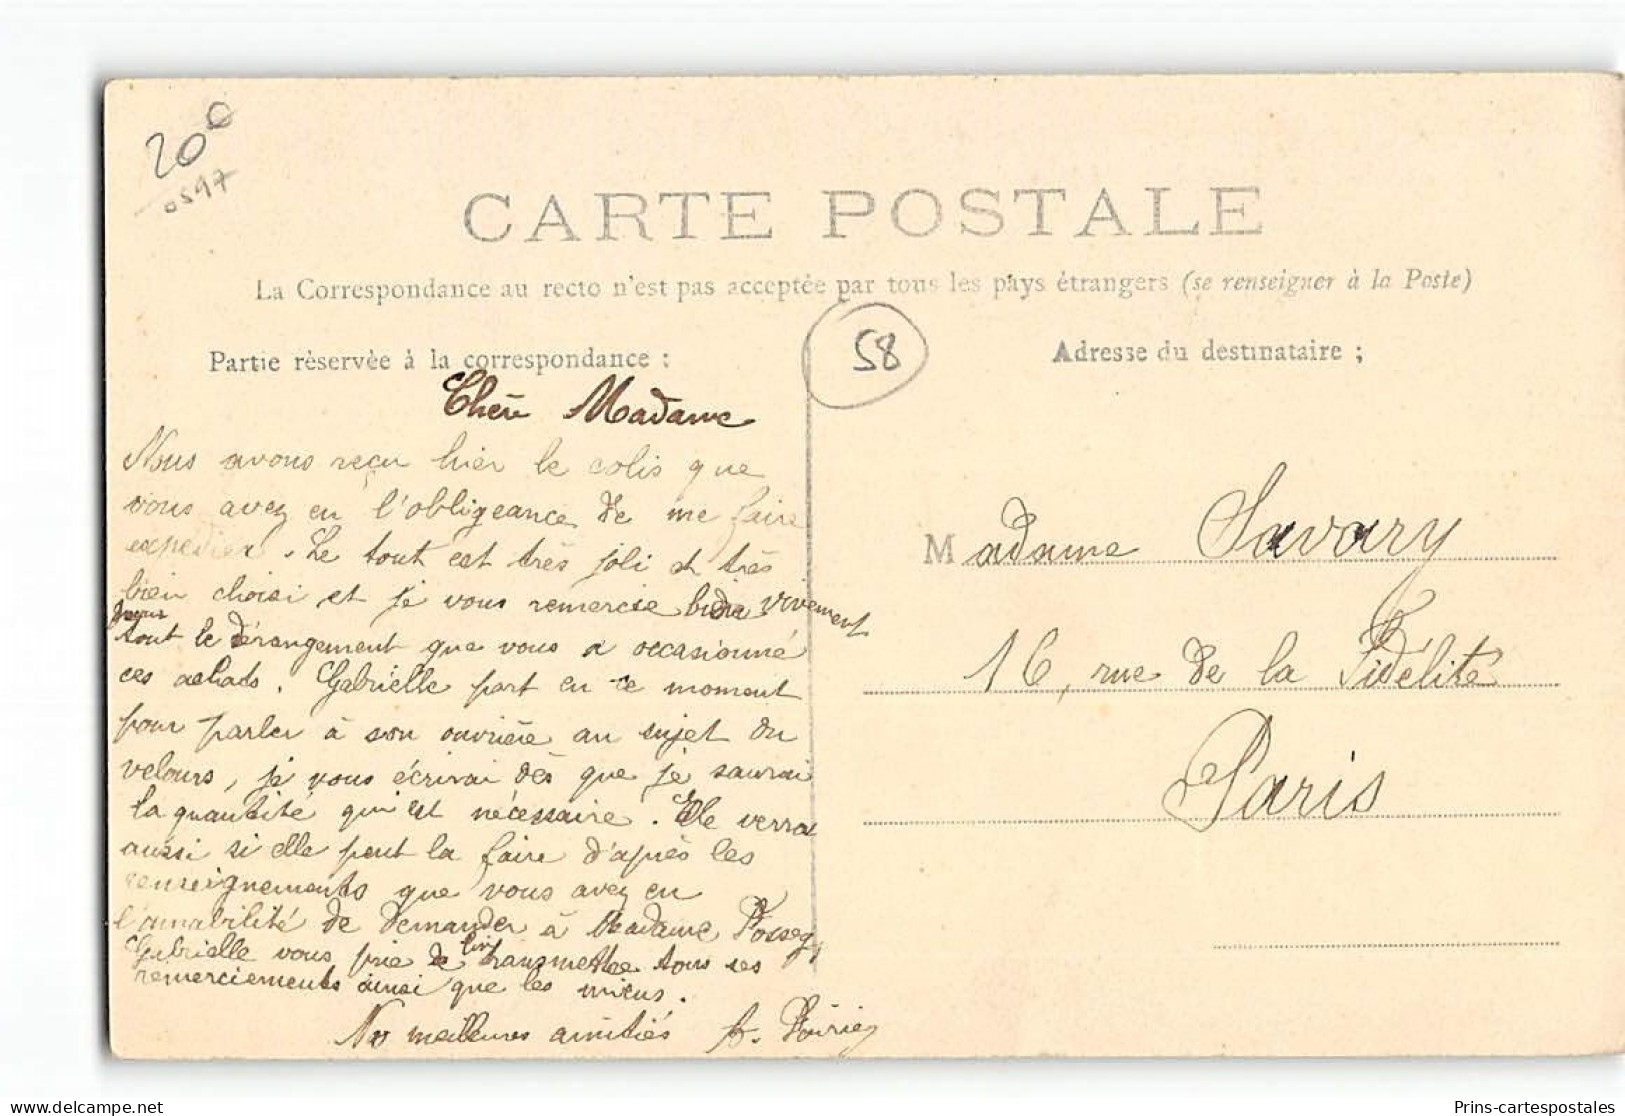 20€
0597
CARTE POSTALE
La Correspondance au recto n'est pas acceptée par tous les pays étrangers (se renseigner à la Poste)
Partie réservée à la correspondance :
58
Adresse du destinataire ;
Chère Madame
Nous avons reçu hier le colis que
vous avez eu l'obligeance de me faire
expedier. Le tout est très joli et très
bien choisi et je vous remercie bien vivement
pour
tout le dérangement que vous a occasionné
ces achats. Gabrielle part en ce moment
pour parler à son ouvrière au sujet du
velours, je vous écrirai dès que je saurai
la quantité qui est nécessaire. Elle verra
aussi si elle peut la faire d'après les
renseignements que vous avez eu
l'amabilité de demander à Madame
Gabrielle vous prie de lui transmettre tous ses
remerciements ainsi que les miens.
Nos meilleures amitiés
Madame Savary
16, rue de la Fidélité
Paris
delcampe.net
Prins-cartespostales